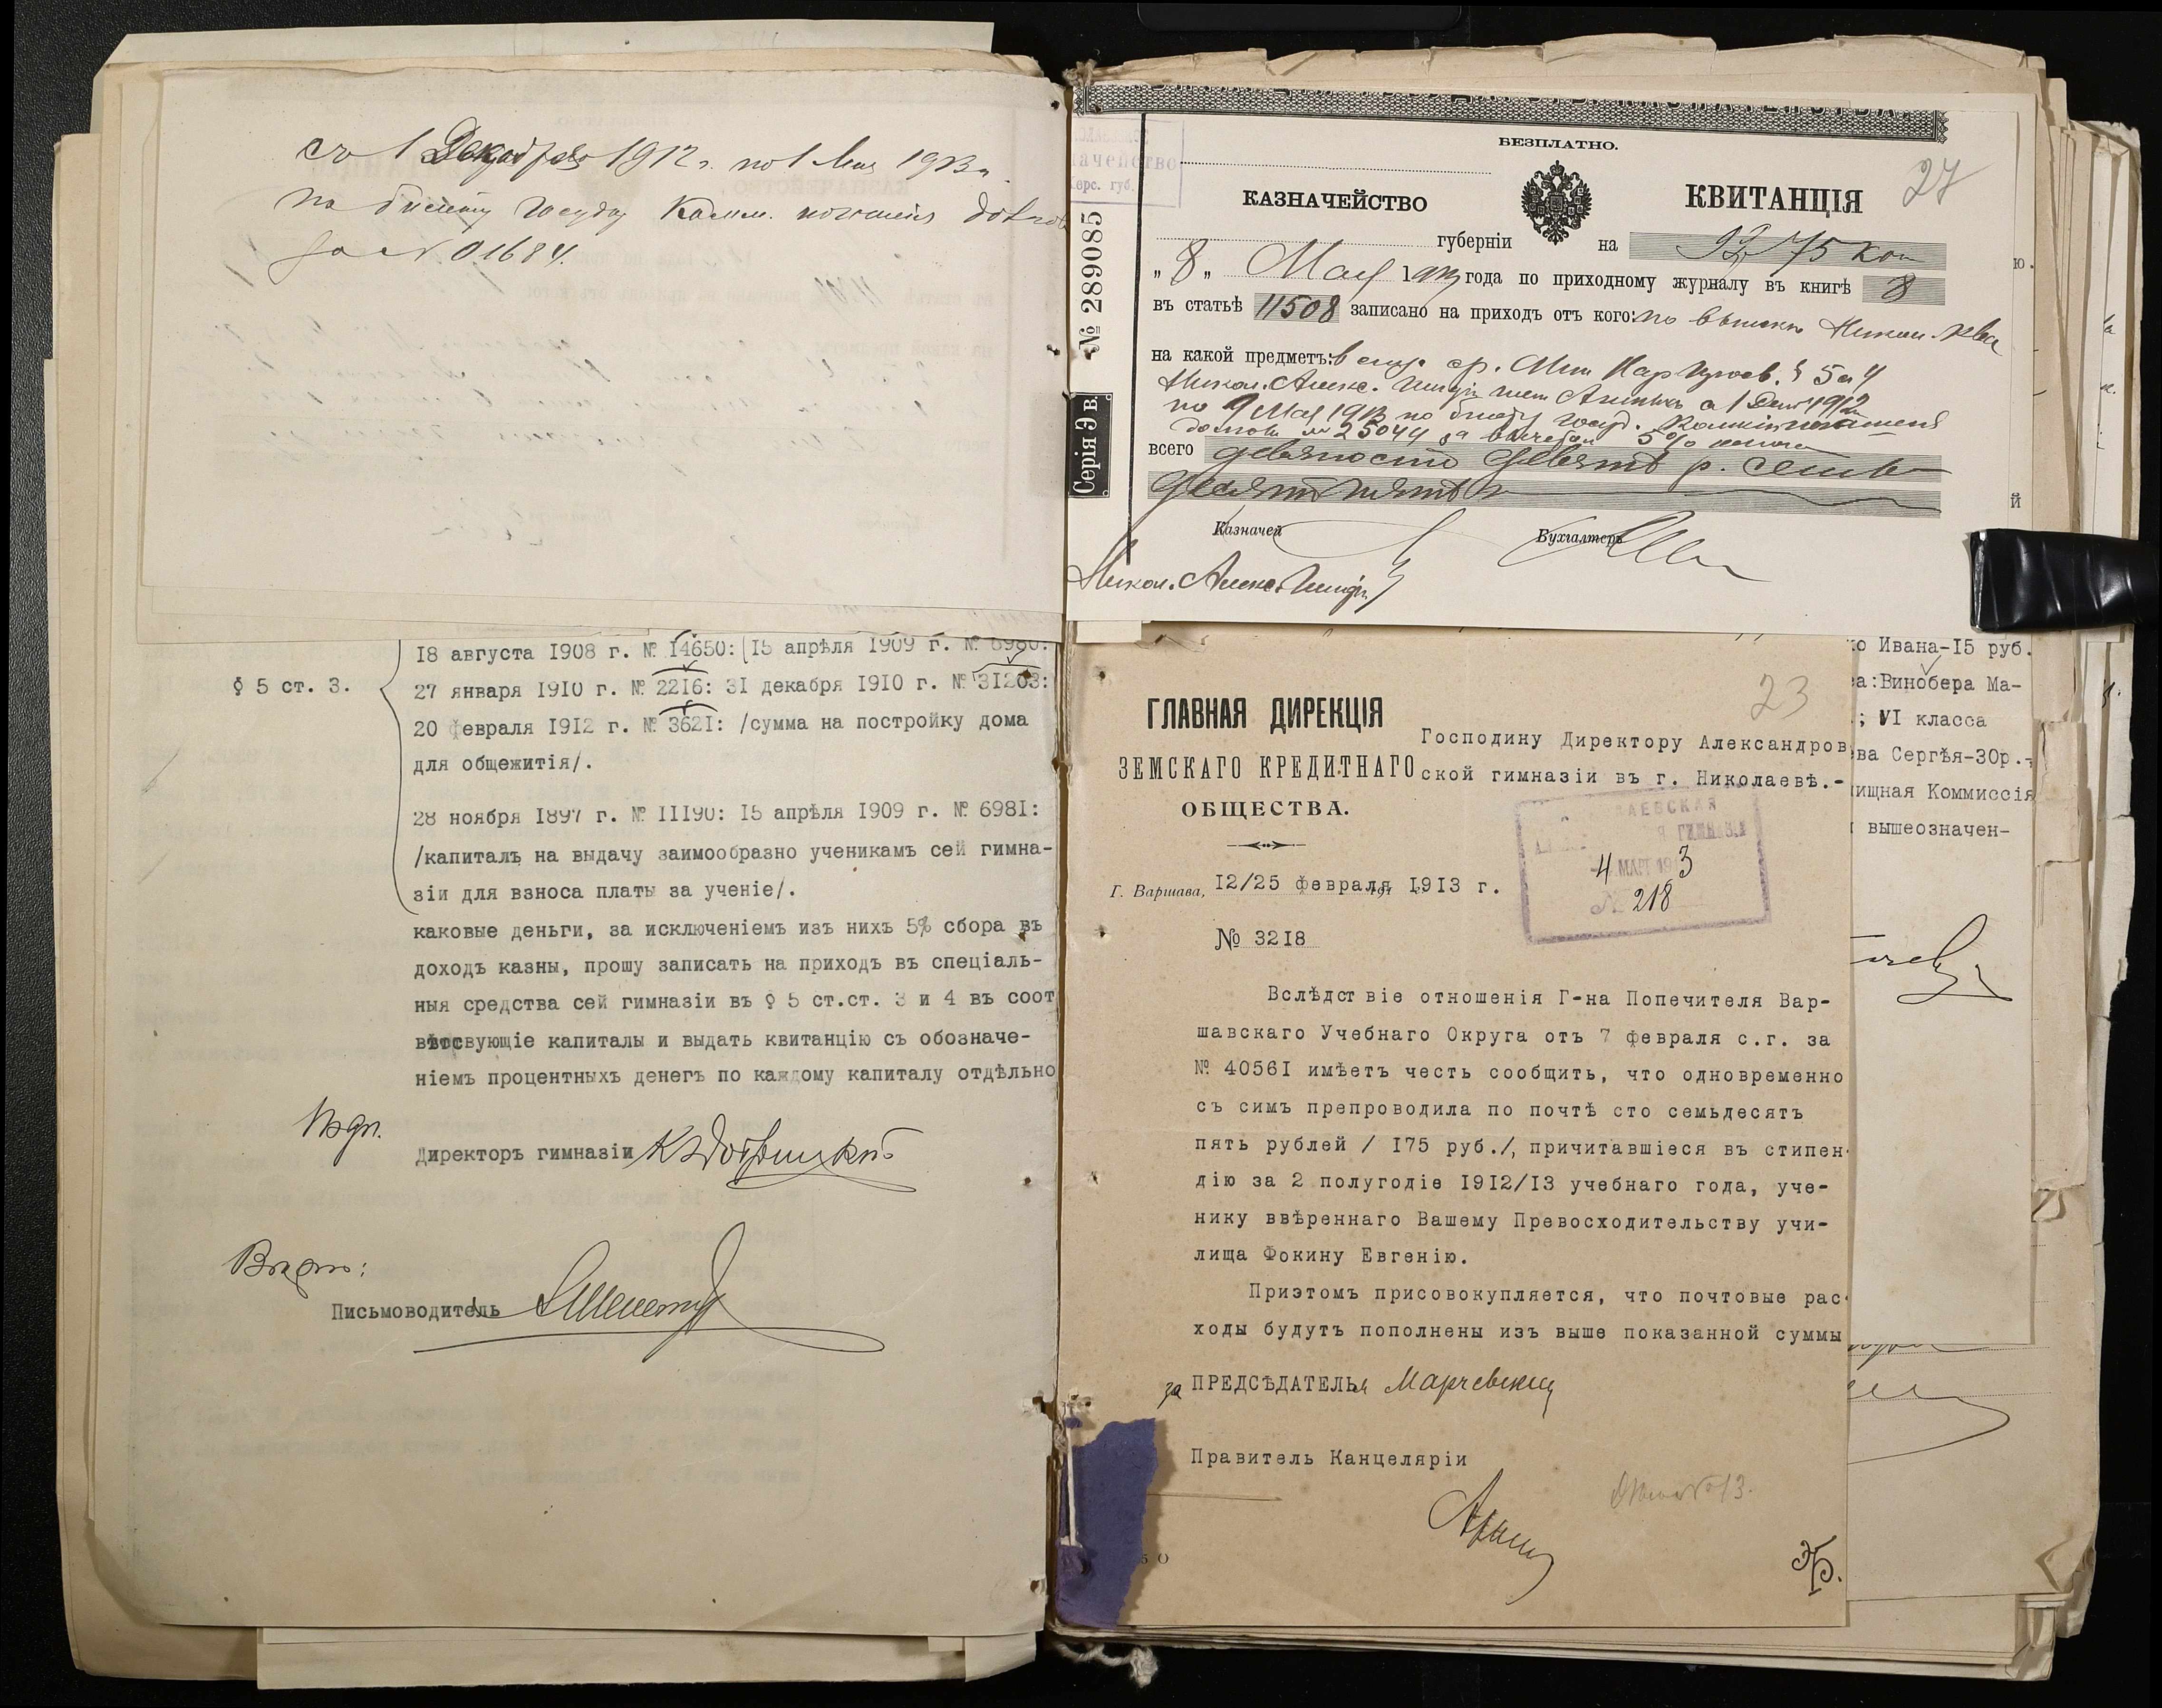 1912 г. по 1 Мая 1913 г.
по билету Госуд. Комм. погашенія долговъ
за № 01684.
18 августа 1908 г. № 14650: 15 апрѣля 1909 г. № 6980:
§ 5 ст. 3.
27 января 1910 г. № 2216: 31 декабря 1910 г. № 31203:
20 февраля 1912 г. № 3621: /сумма на постройку дома
для общежитія/.
28 ноября 1897 г. № 11190: 15 апрѣля 1909 г. № 6981:
/капиталъ на выдачу заимообразно ученикамъ сей гимна-
зіи для взноса платы за ученіе/.
каковые деньги, за исключеніемъ изъ нихъ 5% сбора въ
доходъ казны, прошу записать на приходъ въ спеціаль-
ныя средства сей гимназіи въ § 5 ст.ст. 3 и 4 въ соот
вѣтсвующіе капиталы и выдать квитанцію съ обозначе-
ніемъ процентныхъ денегъ по каждому капиталу отдѣльно
Подп.
Директоръ гимназіи
Вѣрно:
Письмоводитель
БЕЗПЛАТНО.
27
КАЗНАЧЕЙСТВО
КВИТАНЦІЯ
губерніи
на 75 коп
№ 289085
Серія Э В.
„ 8 „ Мая 1913 года по приходному журналу въ книгѣ 8
въ статьѣ 11508 записано на приходъ отъ кого:
на какой предметъ: § 5 ст 4
Никол. Алекс.
по 1 Мая 1913 по билету Госуд. Комміс погашенія
долговъ № 25044 за вычетомъ 5%
всего девяносто девять р. семь-
десятъ пять к
Казначей
Бухгалтеръ
Никол. Алекс.
23
ГЛАВНАЯ ДИРЕКЦІЯ
ЗЕМСКАГО КРЕДИТНАГО
ОБЩЕСТВА.
Господину Директору Александров
ской гимназіи въ г. Николаевѣ.-
4 МАРТ 1913
№ 218
Г. Варшава, 12/25 февраля 1913 г.
№ 3218
Вслѣдствіе отношенія Г-на Попечителя Вар-
шавскаго Учебнаго Округа отъ 7 февраля с.г. за
№ 40561 имѣетъ честь сообщить, что одновременно
съ симъ препроводила по почтѣ сто семьдесятъ
пять рублей / 175 руб./, причитавшіеся въ стипен-
дію за 2 полугодіе 1912/13 учебнаго года, уче-
нику ввѣреннаго Вашему Превосходительству учи-
лища Фокину Евгенію.
Приэтомъ присовокупляется, что почтовые рас-
ходы будутъ пополнены изъ выше показанной суммы
за ПРЕДСѢДАТЕЛЬя Марчевскій
Правитель Канцеляріи
ко Ивана-15 руб.
а:Винобера Ма-
; VI класса
ва Сергѣя-30р.-
ищная Коммиссія
вышеозначен-